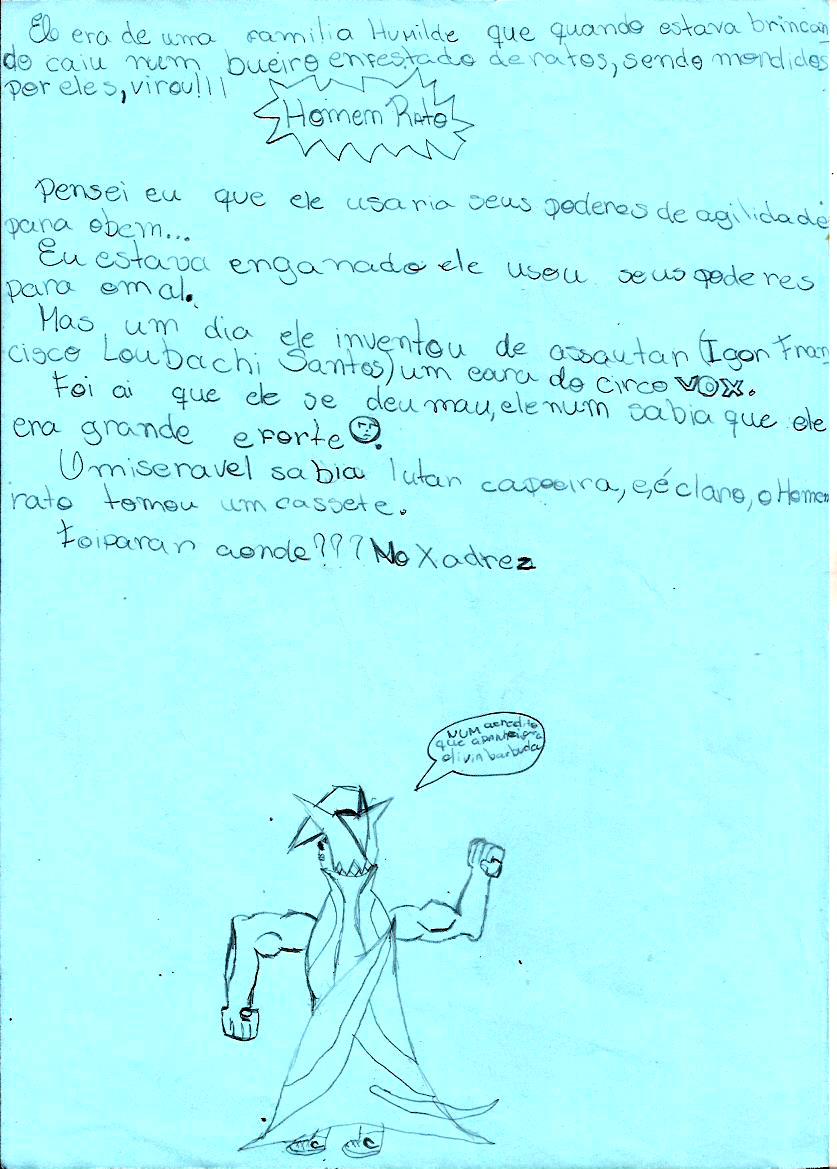 Ele era de uma familia Humilde que quando estava brincan
do caiu num bueiro enfestado de ratos, sendo mordidos
por eles, virou!!!
Homem Rato
Pensei eu que ele usaria seus poderes de agilidade
para obem...
Eu estava enganado ele usou seus poderes
para omal.
Mas um dia ele inventou de assautar (Igor Fran
cisco Loubachi Santos) um cara do circo VOX.
Foi ai que ele se deu mau, ele num sabia que ele
era grande eforte.
Omiseravel sabia lutar capoeira, e, é claro, o Homem
rato tomou um cassete.
Foiparar aonde??? No Xadrez
NUM acredito
que apanhei pra
barbuda